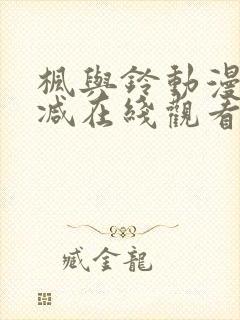 楓與鈴動漫
减在綫觀看
臧金龍